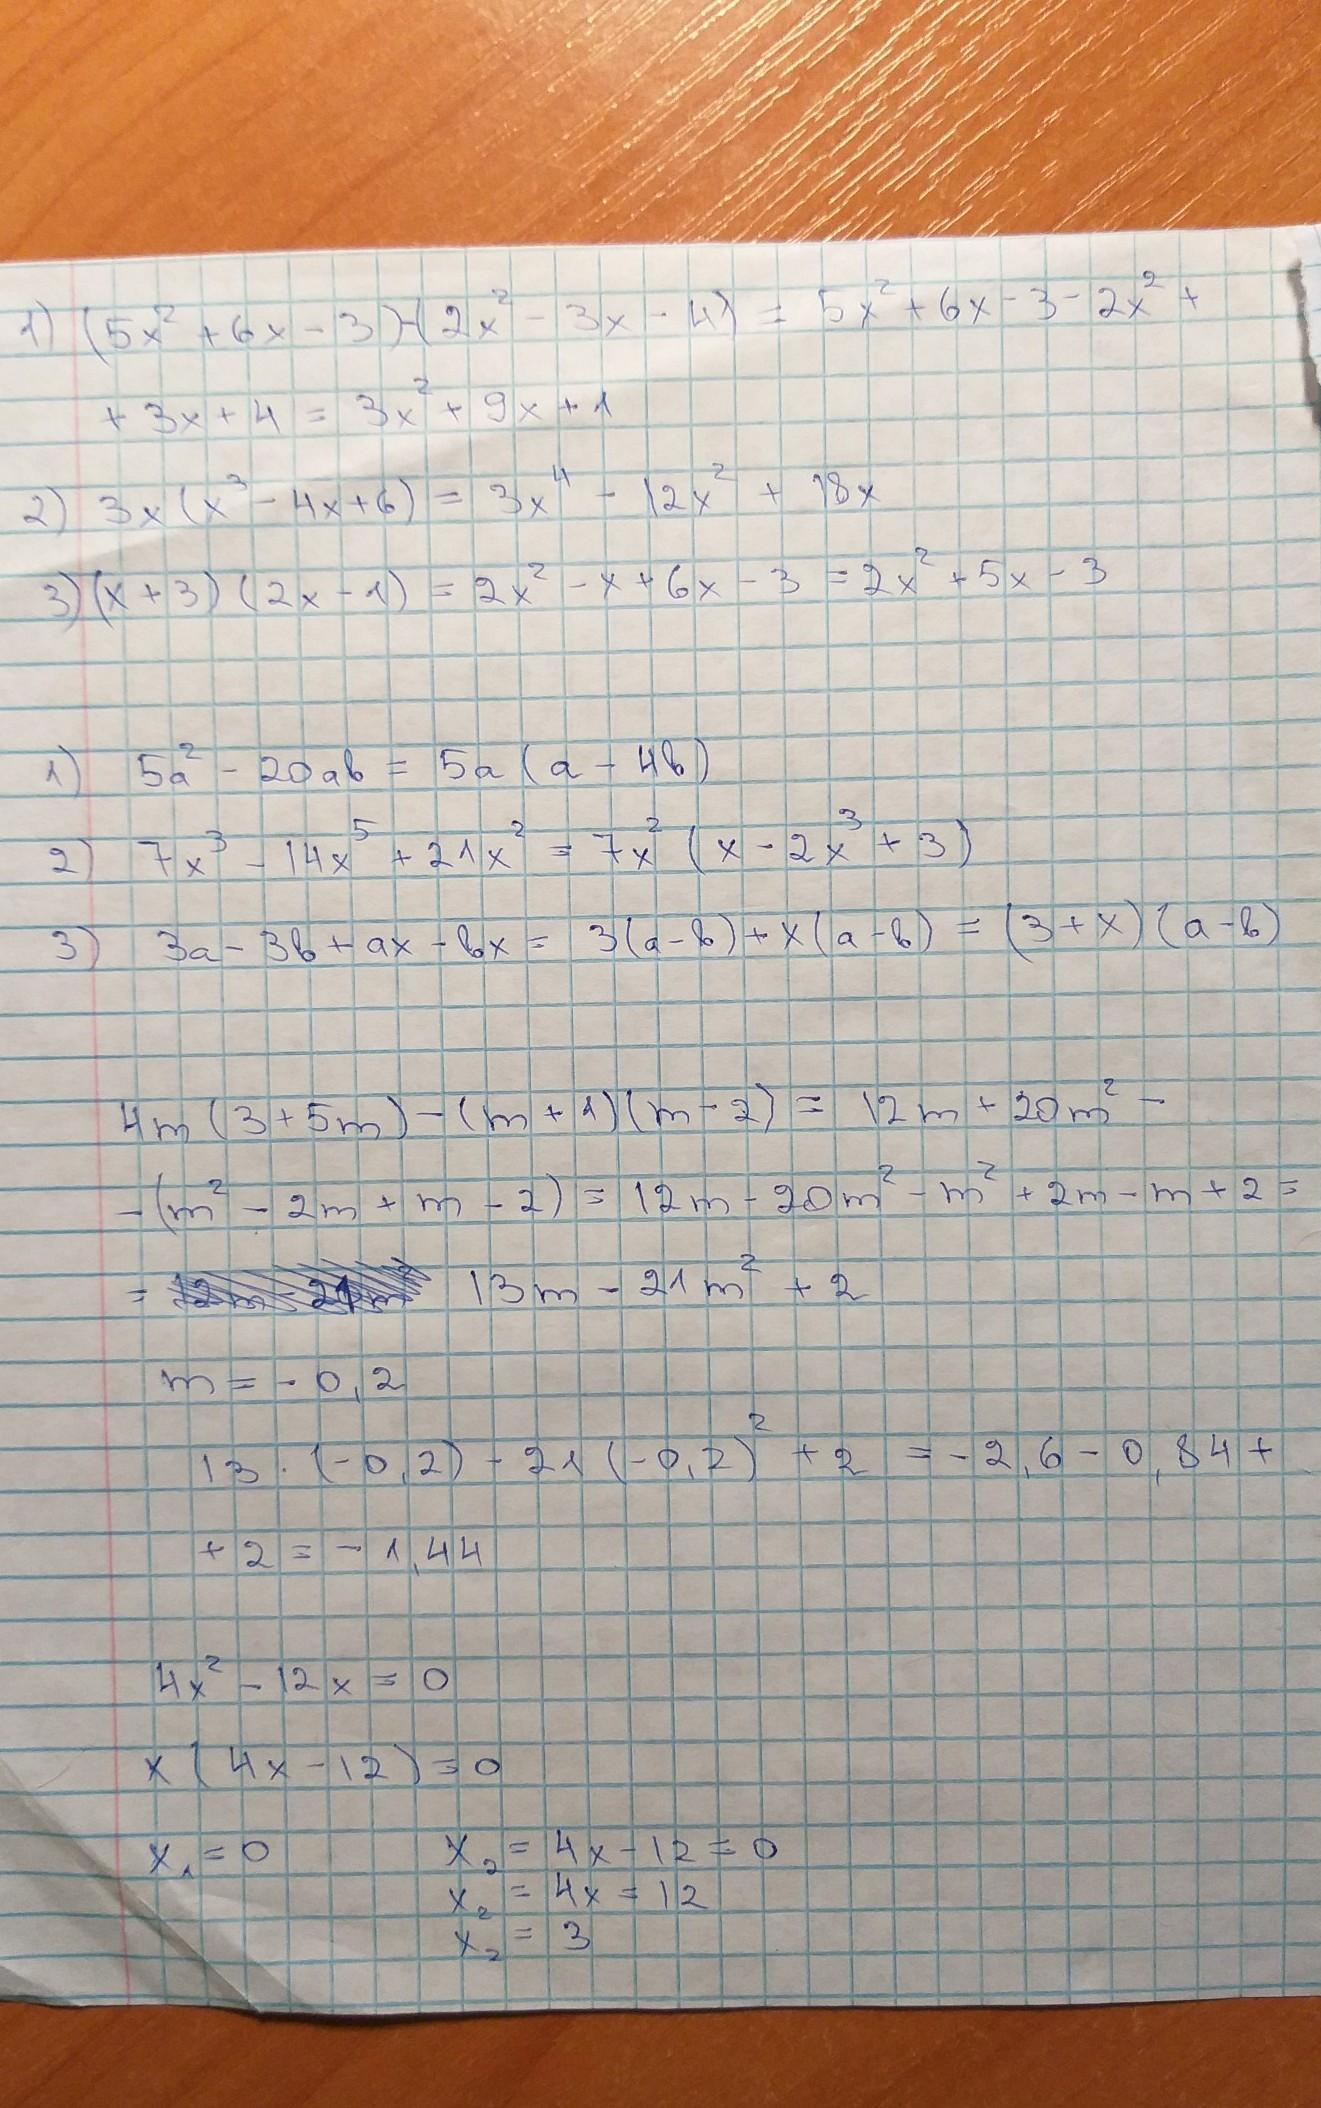 1) (5x² + 6x - 3) - (2x² - 3x - 4) = 5x² + 6x - 3 - 2x² +
+ 3x + 4 = 3x² + 9x + 1
2) 3x (x³ - 4x + 6) = 3x⁴ - 12x² + 18x
3) (x + 3) (2x - 1) = 2x² - x + 6x - 3 = 2x² + 5x - 3
1) 5a² - 20ab = 5a (a - 4b)
2) 7x³ - 14x⁵ + 21x² = 7x² (x - 2x³ + 3)
3) 3a - 3b + ax - bx = 3(a - b) + x(a - b) = (3 + x) (a - b)
4m (3 + 5m) - (m + 1) (m - 2) = 12m + 20m² -
- (m² - 2m + m - 2) = 12m - 20m² - m² + 2m - m + 2 =
= 13m - 21m² + 2
m = - 0,2
13 · (-0,2) - 21 (-0,2)² + 2 = - 2,6 - 0,84 +
+ 2 = - 1,44
4x² - 12x = 0
x (4x - 12) = 0
x₁ = 0 x₂ = 4x - 12 = 0
x₂ = 4x = 12
x₂ = 3